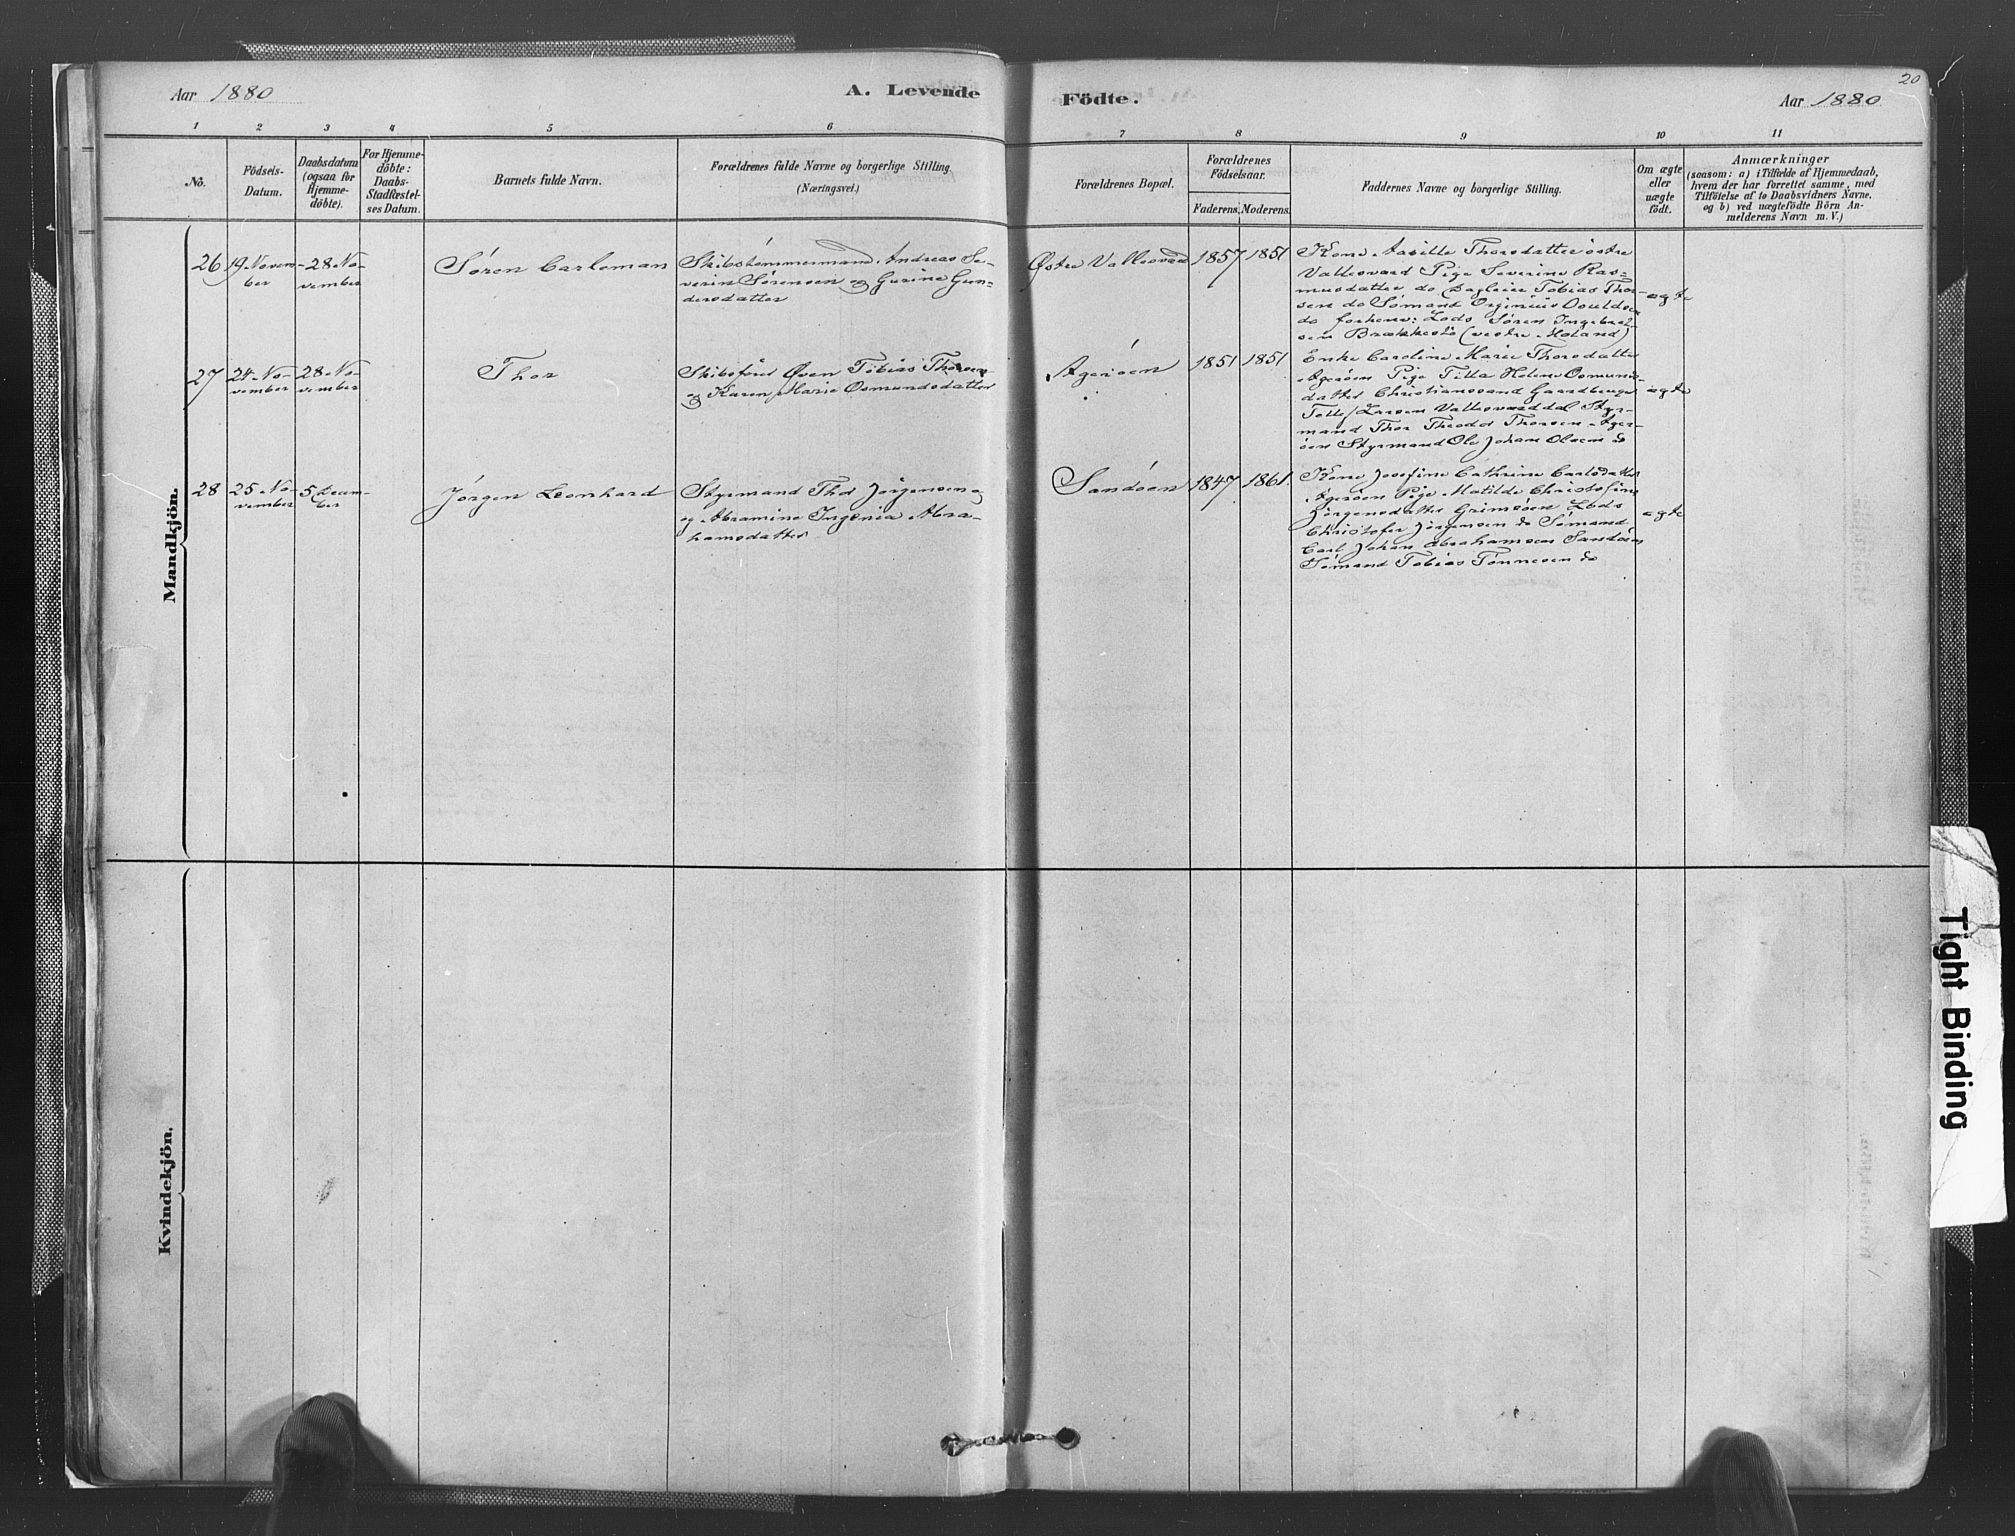 20
Aar 1880
A. Levende
Födte.
Aar 1880
1 2 3 4 5 6 7 8 9 10 11
No.
Födsels-
Datum.
Daabsdatum
(ogsaa for
Hjemme-
döbte).
For Hjemme-
döbte:
Daabs-
Stadfæstel-
ses Datum.
Barnets fulde Navn.
Forældrenes fulde Navne og borgerlige Stilling.
(Næringsvei.)
Forældrenes Bopæl.
Forældrenes
Födselsaar.
Faderens. Moderens.
Faddernes Navne og borgerlige Stilling.
Om ægte
eller
uægte
födt.
Anmærkninger
(saasom: a) i Tilfælde af Hjemmedaab,
hvem der har forrettet samme, med
Tilföielse af to Daabsvidners Navne,
og b) ved uægtefödte Börn An-
melderens Navn m. V.)
Mandkjön.
26
19 Novem-
ber
28 No-
vember
Søren Carloman
Skibstømmermand Andreas Se-
verin Sørensen og Gurine Gun-
dersdatter
Østre Vallesværd
1857
1851
Kone Thorsdatter østre
Vallesværd Pige Severine Ras-
musdatter do Tobias Thor-
sen do Sømand Osuldsen
do Lods Søren Ingebret-
sen Brækkestø (vestre Moland)
ægte
27
24 No-
vember
28 No-
vember
Thor
Skibsfører Øven Tobias Thorsen
og Karen Marie Osmundsdatter
Agerøen
1851
1851
Enke Caroline Marie Thorsdatter
Agerøen Pige Helene Osmunds-
datter Christianssand Gaardbruger
Larsen Vallesværddal Styr-
mand Thor Theodor Thorsen Ager-
øen Styrmand Ole Johan Olsen do
ægte
28
25 No-
vember
5 Decem-
ber
Jørgen Leonhard
Styrmand Thor Jørgensen
og Abramine Ingenia Abra-
hamsdatter
Sandøen
1847
1861
Kone Josefine Cathrine Carlsdatter
Agerøen Pige Matilde Christofine
Jørgensdatter Grimsøen Lods
Christofer Jørgensen do Sømand
Carl Johan Abrahamsen Sandøen
Sømand Tobias Tønnesen do
ægte
Kvindekjön.
Tight Binding